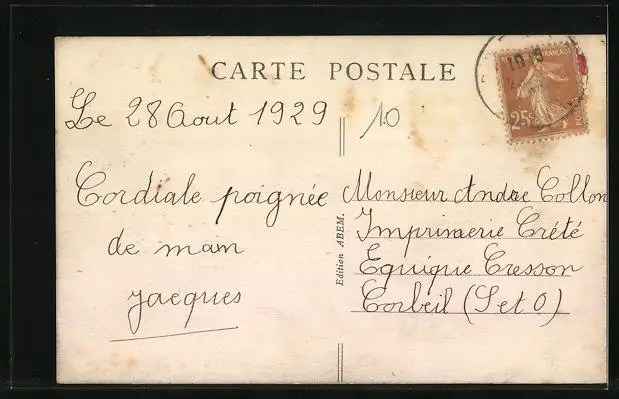 CARTE POSTALE
Le 28 Aout 1929
10
Cordiale poignée
de main
Jacques
Edition ABEM.
Monsieur Andre Collon
Imprimerie Crété
Equique Cresson
Corbeil (S et O)
25c